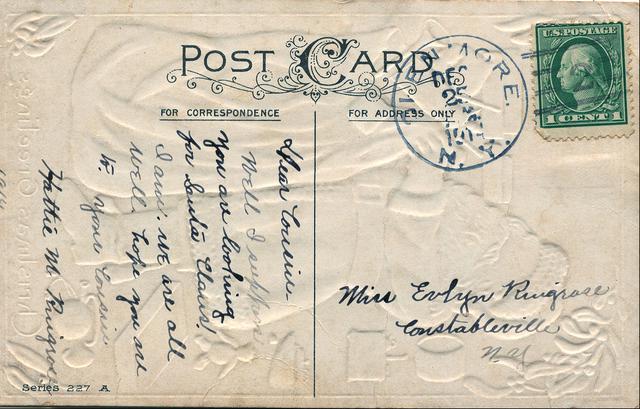 POST CARD
FOR CORRESPONDENCE
FOR ADDRESS ONLY
GLENMORE.
DEC
25
N. Y.
U.S. POSTAGE
1 CENT 1
Dear Cousin
Well I suppose
you are looking
for Santa Claus!
I am: we are all
well hope you are
to. your Cousin
Hattie M. Ringrose
Miss Evlyn Ringrose
Constableville
N Y
Series 227 A